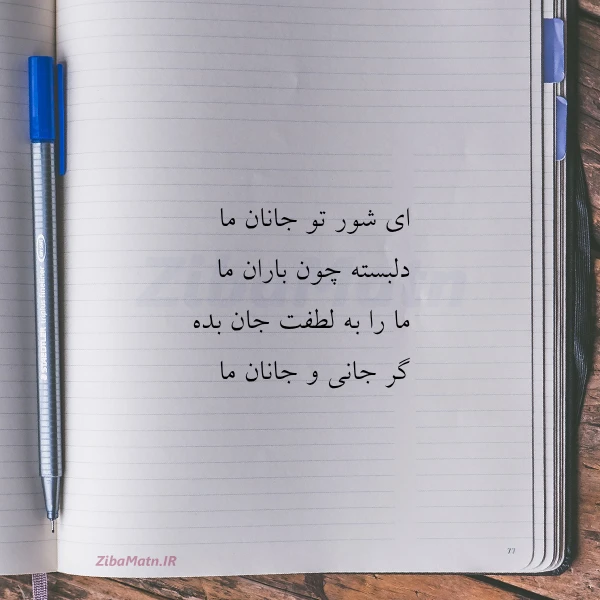 ای شور تو جانان ما
دلبسته چون باران ما
ما را به لطفت جان بده
گر جانی و جانان ما
ZibaMatn.IR